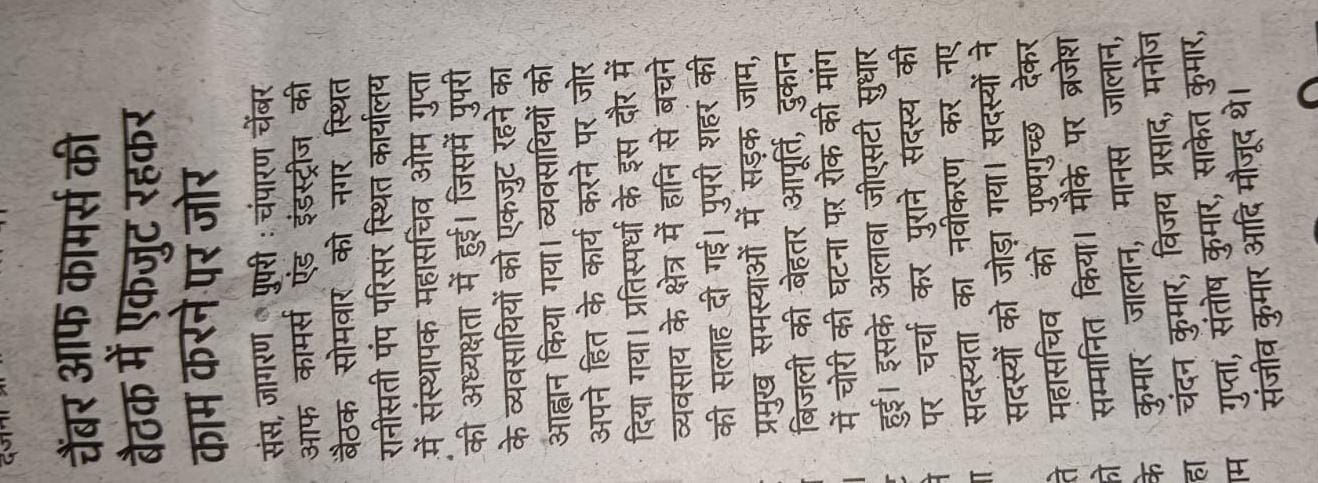 चैंबर आफ कामर्स की
बैठक में एकजुट रहकर
काम करने पर जोर
संस, जागरण • पुपरी : चंपारण चेंबर
आफ कामर्स एंड इंडस्ट्रीज की
बैठक सोमवार को नगर स्थित
रानीसती पंप परिसर स्थित कार्यालय
में संस्थापक महासचिव ओम गुप्ता
की अध्यक्षता में हुई। जिसमें पुपरी
के व्यवसायियों को एकजुट रहने का
आह्वान किया गया। व्यवसायियों को
अपने हित के कार्य करने पर जोर
दिया गया। प्रतिस्पर्धा के इस दौर में
व्यवसाय के क्षेत्र में हानि से बचने
की सलाह दी गई। पुपरी शहर की
प्रमुख समस्याओं में सड़क जाम,
बिजली की बेहतर आपूर्ति, दुकान
में चोरी की घटना पर रोक की मांग
हुई। इसके अलावा जीएसटी सुधार
पर चर्चा कर पुराने सदस्य की
सदस्यता का नवीकरण कर नए
सदस्यों को जोड़ा गया। सदस्यों ने
महासचिव को पुष्पगुच्छ देकर
सम्मानित किया। मौके पर ब्रजेश
कुमार जालान, मानस जालान,
चंदन कुमार, विजय प्रसाद, मनोज
गुप्ता, संतोष कुमार, साकेत कुमार,
संजीव कुमार आदि मौजूद थे।